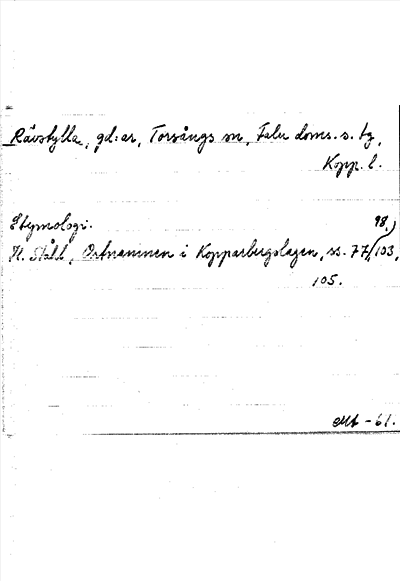 Rävstylla, gd:ar, Torsångs sn, Falu doms. s. tg,
Kopp. l.
Etymologi.
98,
H. Ståhl, Ortnamnen i Kopparbergslagen, ss. 77, 103,
105.
-61.